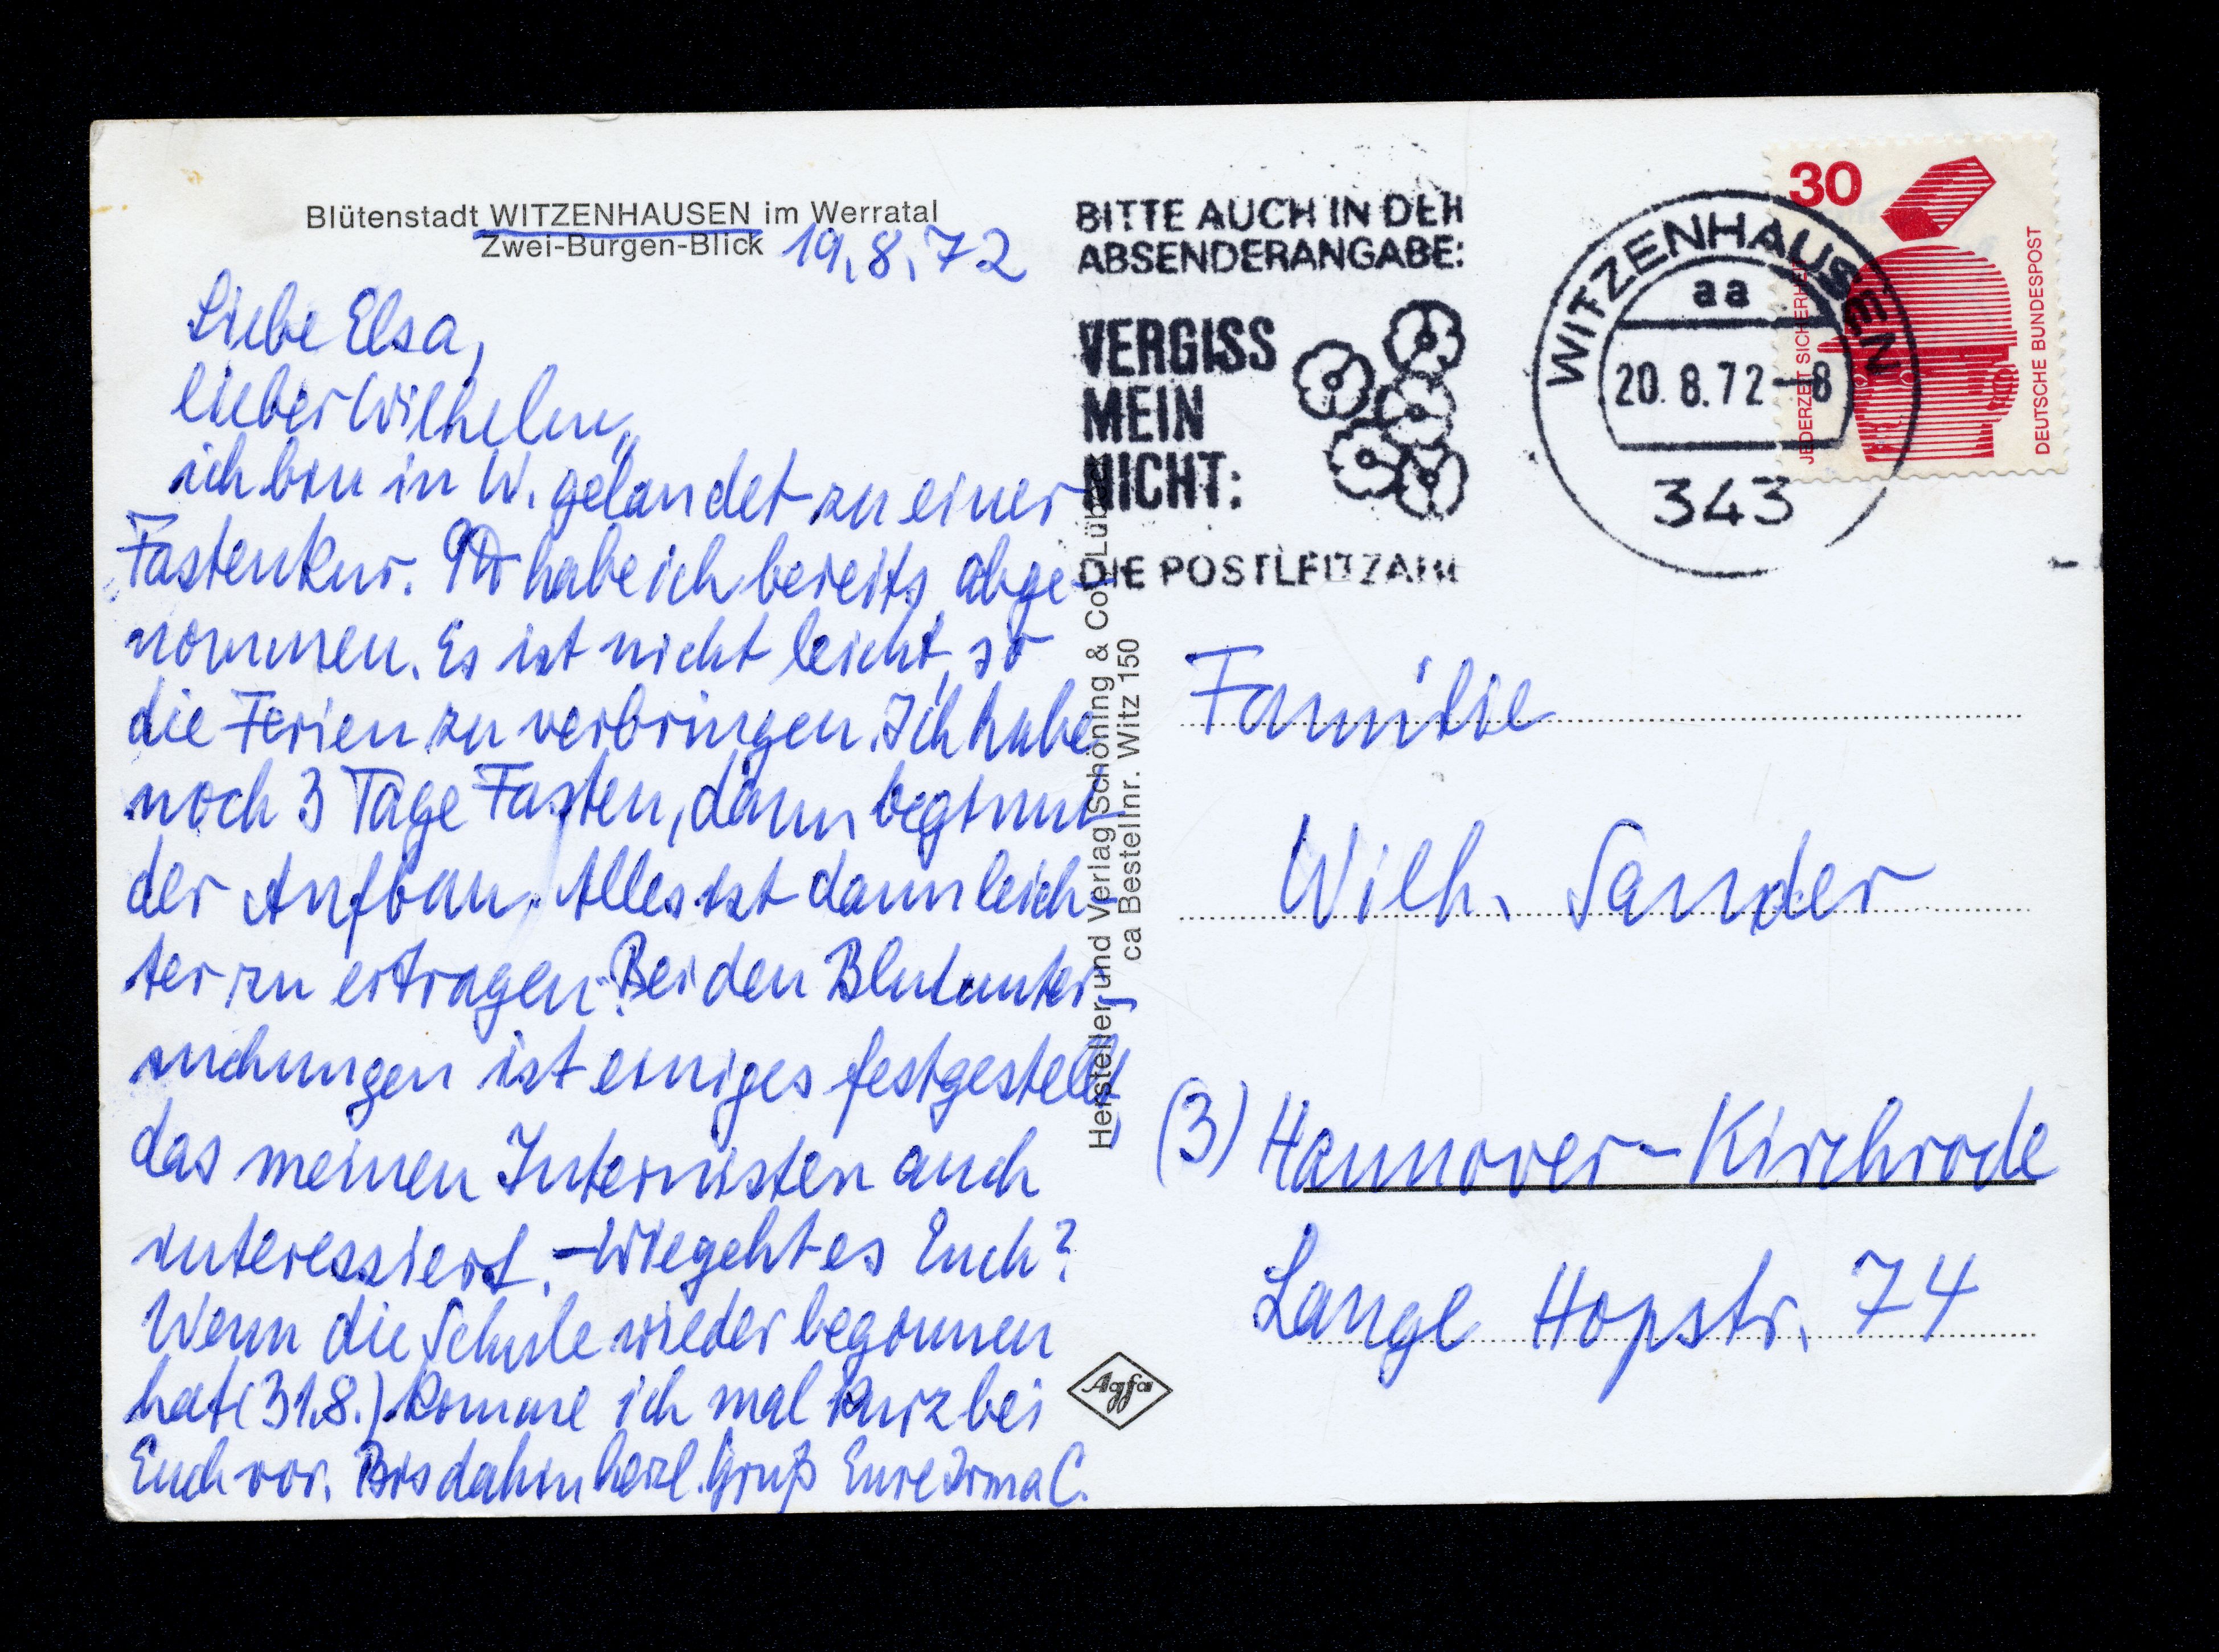 Blütenstadt WITZENHAUSEN im Werratal
Zwei-Burgen-Blick 19.8.72
Liebe Elsa,
lieber Wilhelm,
ich bin in W. gelandet zu einer
Fastenkur. 9 habe ich bereits abge-
nommen. Es ist nicht leicht, so
die Ferien zu verbringen. Ich habe
noch 3 Tage Fasten, dann beginnt
der Aufbau. Alles ist dann leich-
ter zu ertragen. Bei den Blutunter-
suchungen ist einiges festgestellt,
das meinen Internisten auch
interessiert. – Wie geht es Euch?
Wenn die Schule wieder begonnen
hat (31.8.) komme ich mal kurz bei
Euch vor. Bis dahin herzl. Gruß Eure Irma C.
Hersteller und Verlag Schöning & Co
ca Bestellnr. Witz 150
Agfa
BITTE AUCH IN DER
ABSENDERANGABE:
VERGISS
MEIN
NICHT:
DIE POSTLEITZAHL
WITZENHAUSEN
aa
20.8.72-8
343
30
JEDERZEIT SICHERHEIT
DEUTSCHE BUNDESPOST
Familie
Wilh. Sander
(3) Hannover-Kirchrode
Lange Hopstr. 74